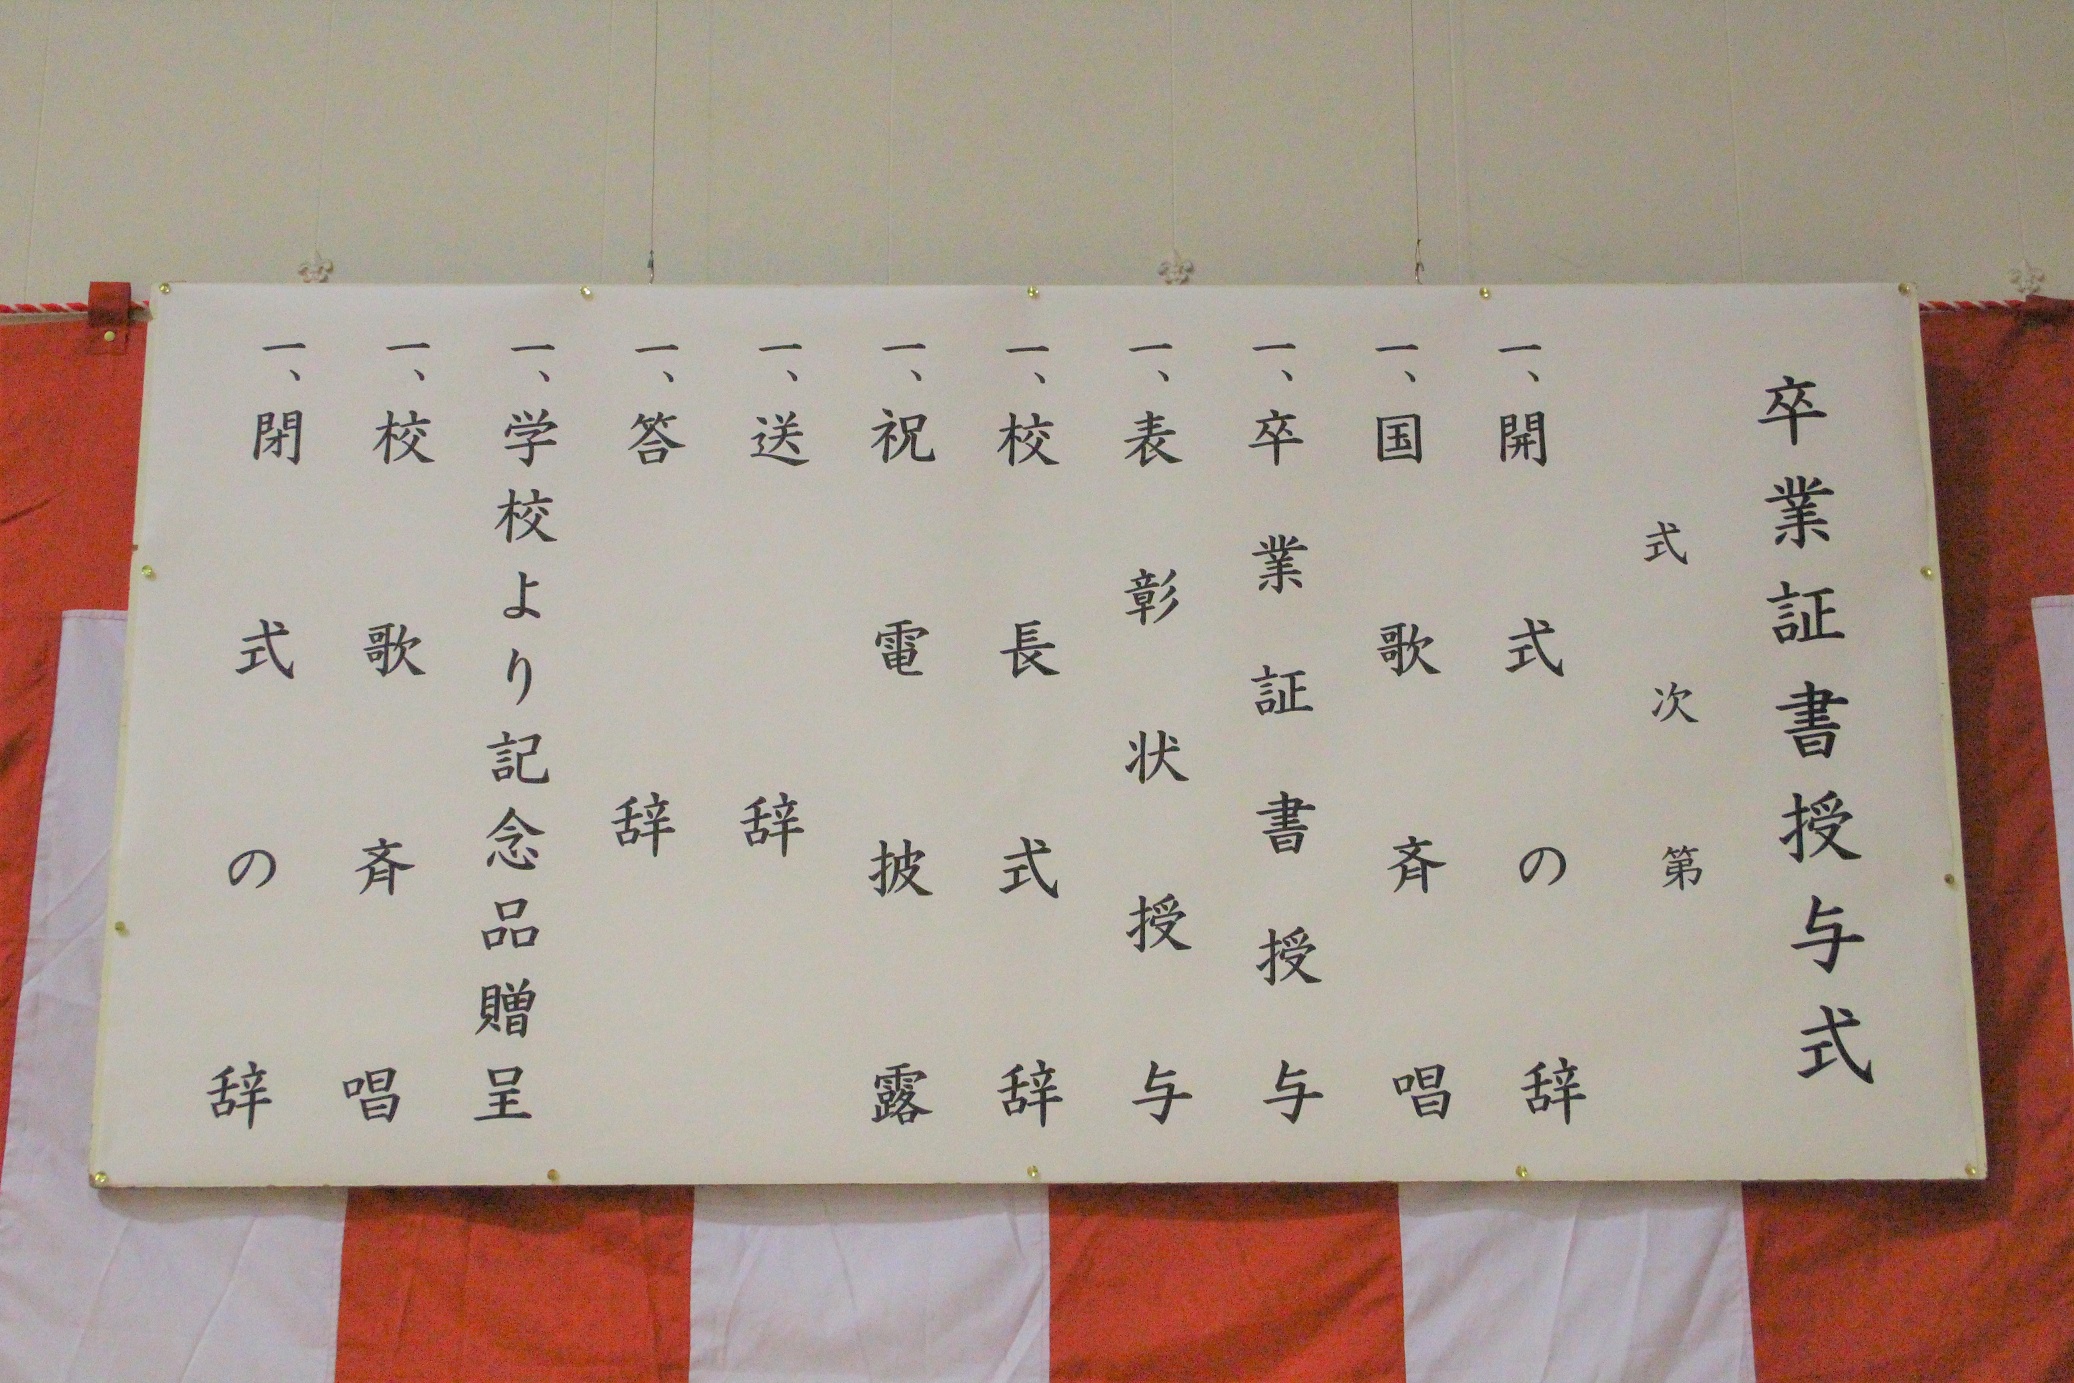 卒業証書授与式
式次第
一、開式の辞
一、国歌斉唱
一、卒業証書授与
一、表彰状授与
一、校長式辞
一、祝電披露
一、送辞
一、答辞
一、学校より記念品贈呈
一、校歌斉唱
一、閉式の辞